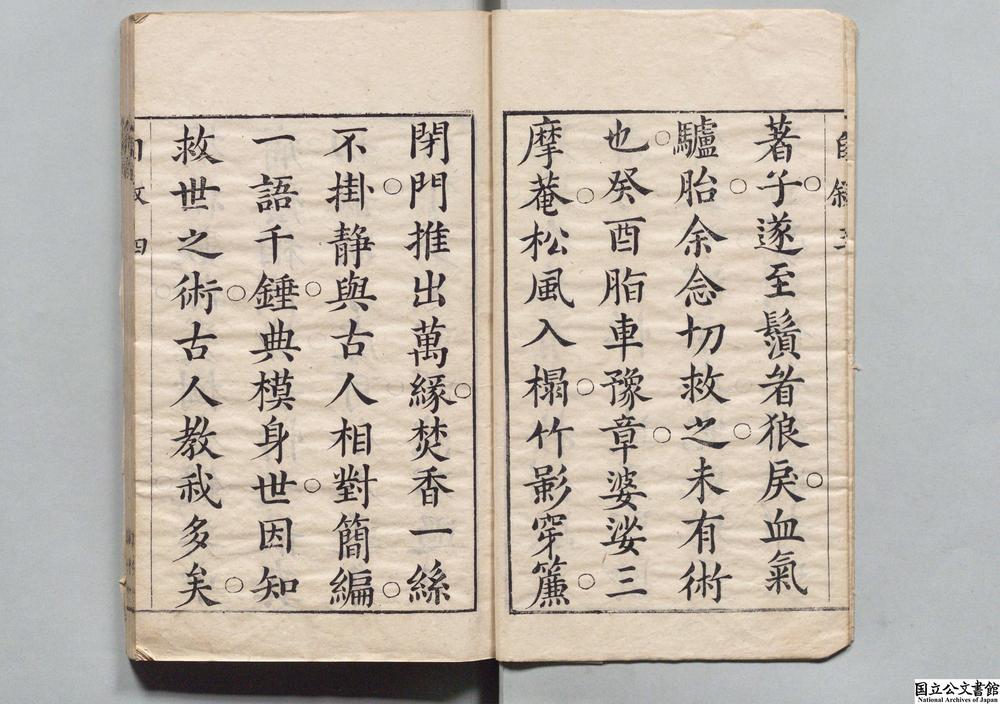 著子遂至鬚眢狼戾血氣
驢胎余念切救之未有術
也癸酉脂車豫章婆娑三
摩菴松風入榻竹影穿簾
閉門推出萬緣焚香一絲
不掛靜與古人相對簡編
一語千錘典模身世因知
救世之術古人教我多矣
四
国立公文書館
National Archives of Japan